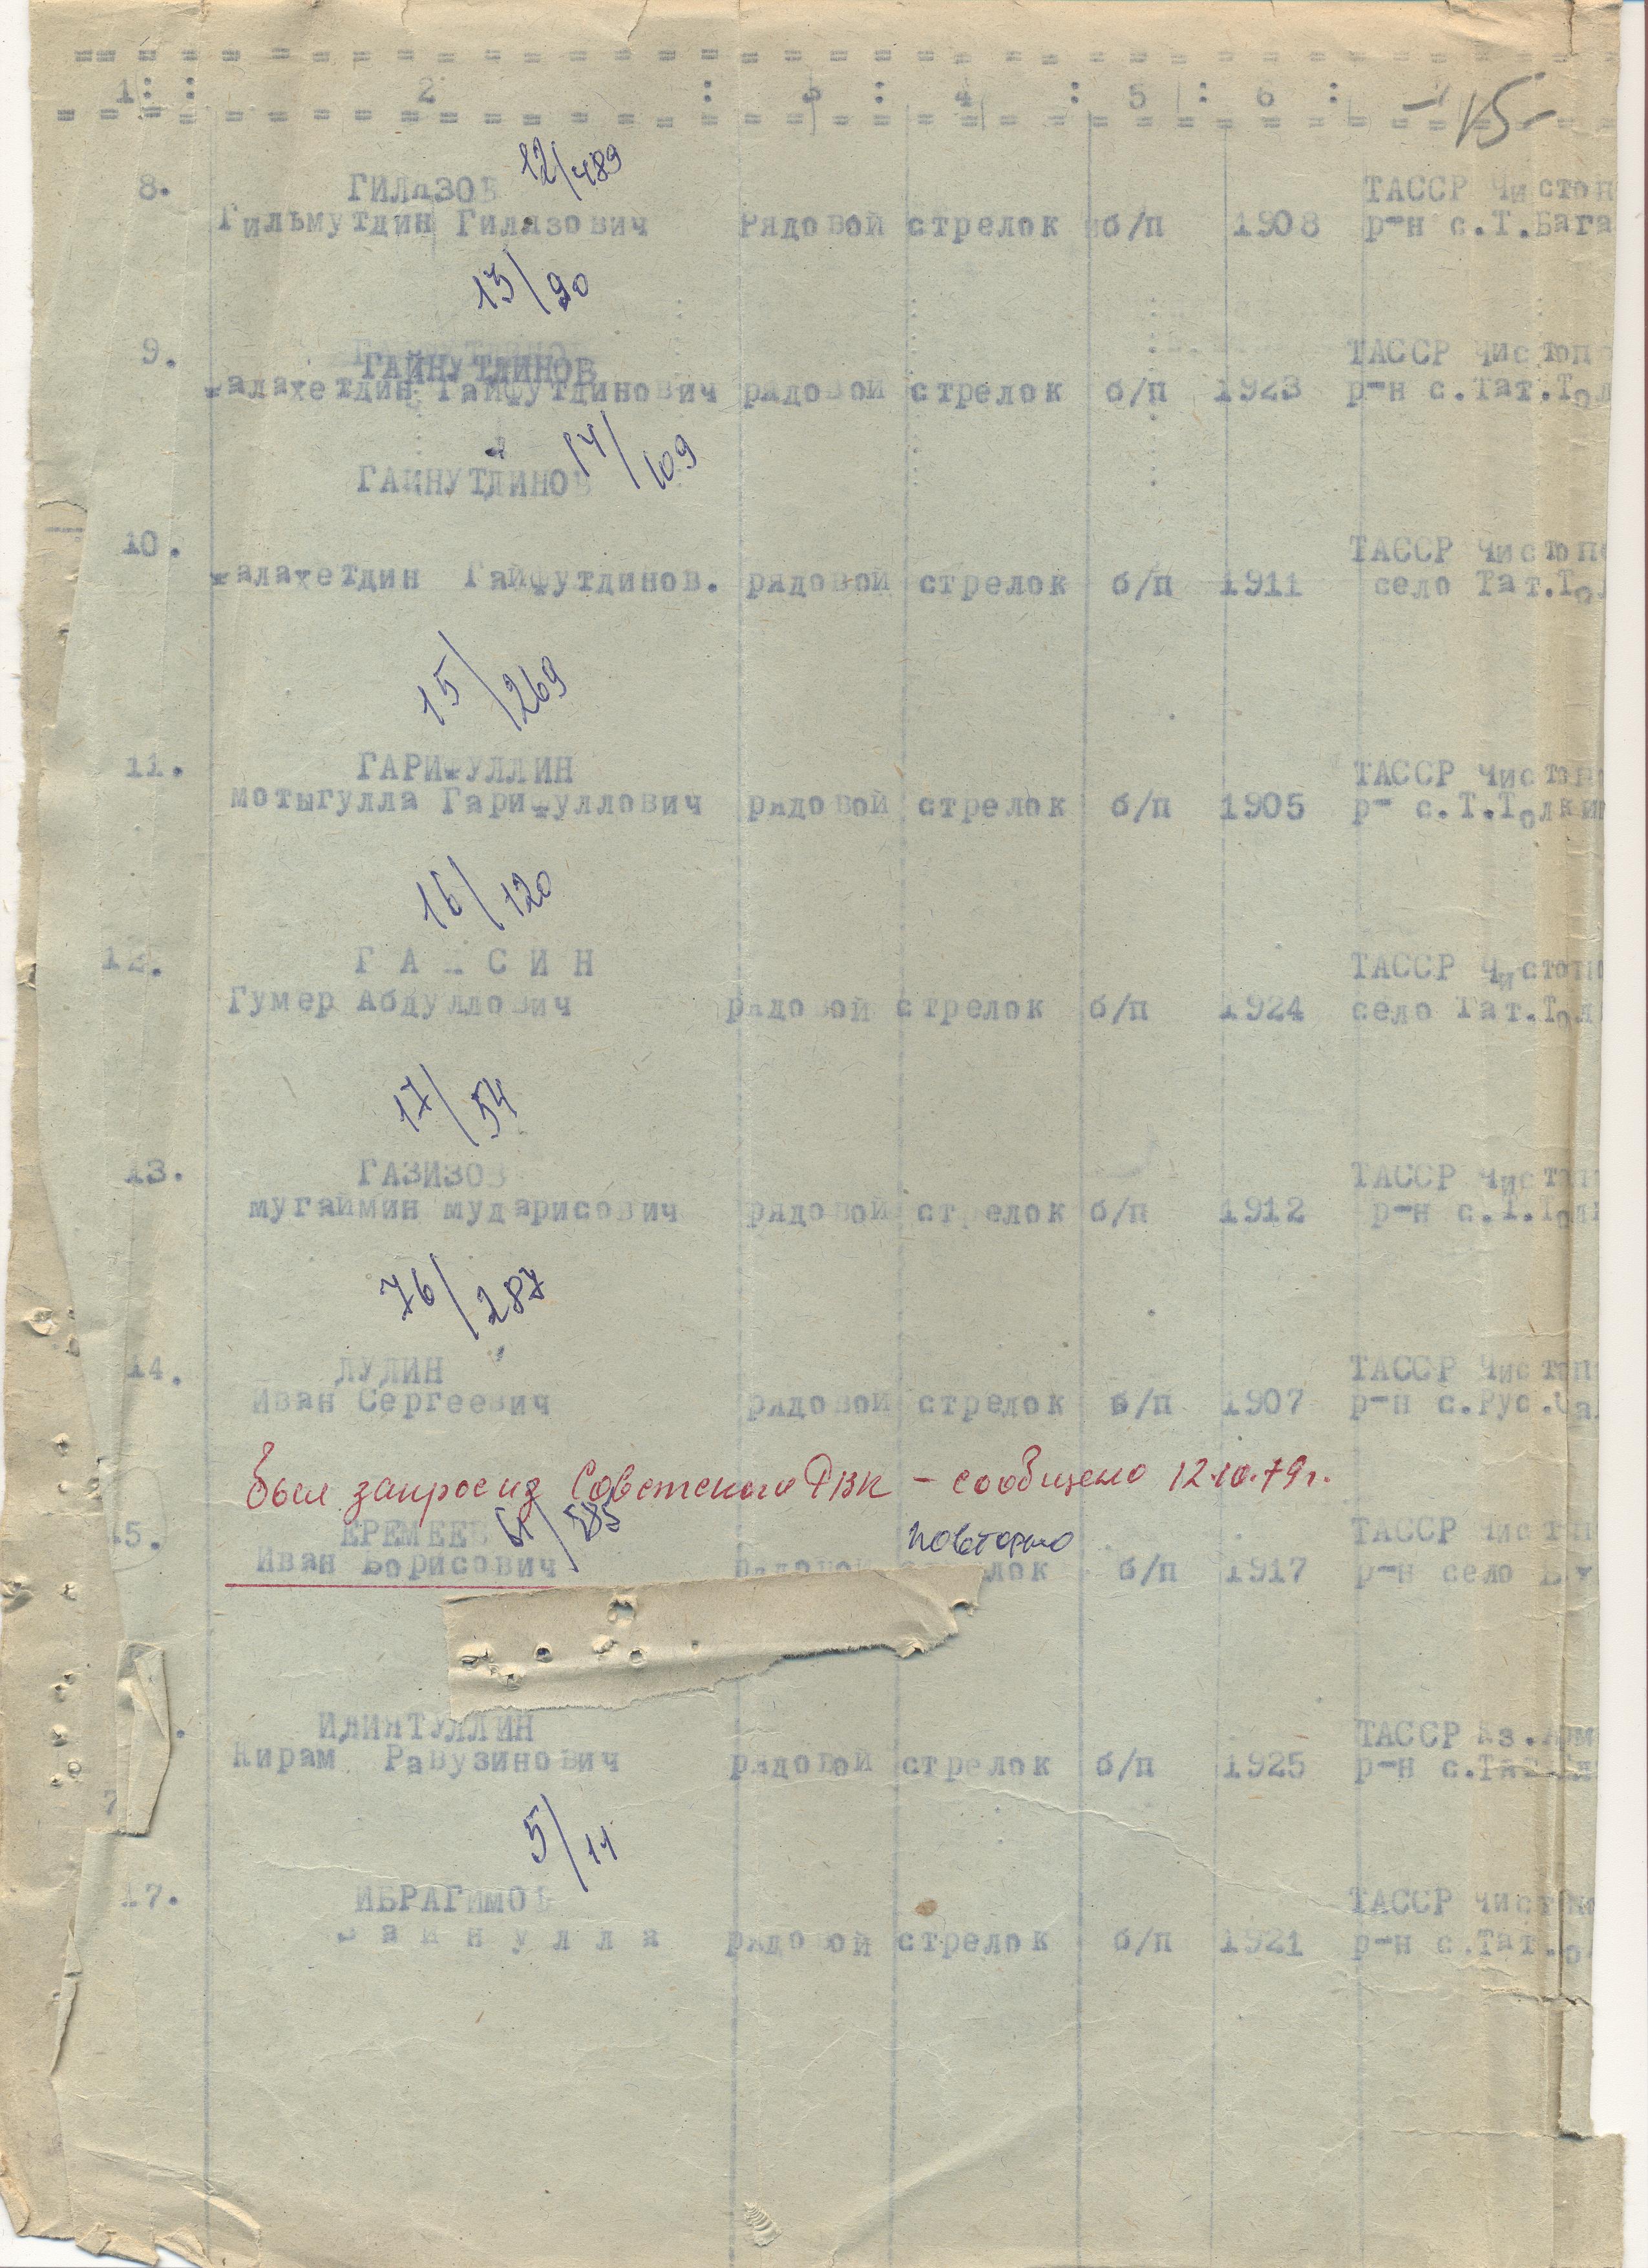 1: : 2 : 3 : 4 : 5 : 6 : 7
-15-
12/489
8. ГИЛЯЗОВ ТАССР Чистоп
Гильмутдин Гилязович Рядовой стрелок б/п 1908 р-н с.Т.Бага
13/90
9. ГАЙНУТДИНОВ ТАССР Чистопо
алахетдин Гайфутдинович рядовой стрелок б/п 1923 р-н с.Тат.Тол
14/109
ГАЙНУТДИНОВ
10. ТАССР Чистопо
алахетдин Гайфутдинов. рядовой стрелок б/п 1911 село Тат.Тол
15/269
11. ГАРИФУЛЛИН ТАССР Чистоп
мотыгулла Гарифуллович рядовой стрелок б/п 1905 р- с.Т.Толки
16/120
12. ТАССР Чистоп
Гумер Абдуллович рядовой стрелок б/п 1924 село Тат.Тол
17/54
13. ГАЗИЗОВ ТАССР Чистоп
мугаймин мударисович рядовой стрелок б/п 1912 р-н с.Т.Тол
76/287
14. ЛУЛИН ТАССР Чистоп
Иван Сергеевич рядовой стрелок б/п 1907 р-н с.Рус.Са
Был запрос из Советского РВК - сообщено 12.10.79г.
15. ЕРЕМЕЕВ 61/585 повторно ТАССР Чистоп
Иван Борисович рядовой лок б/п 1917 р-н село
. ТАССР Аз.
Кирам Равузинович рядовой стрелок б/п 1925 р-н
5/11
17. ИБРАГИМОВ ТАССР Чистопо
рядовой стрелок б/п 1921 р-н с.Тат.